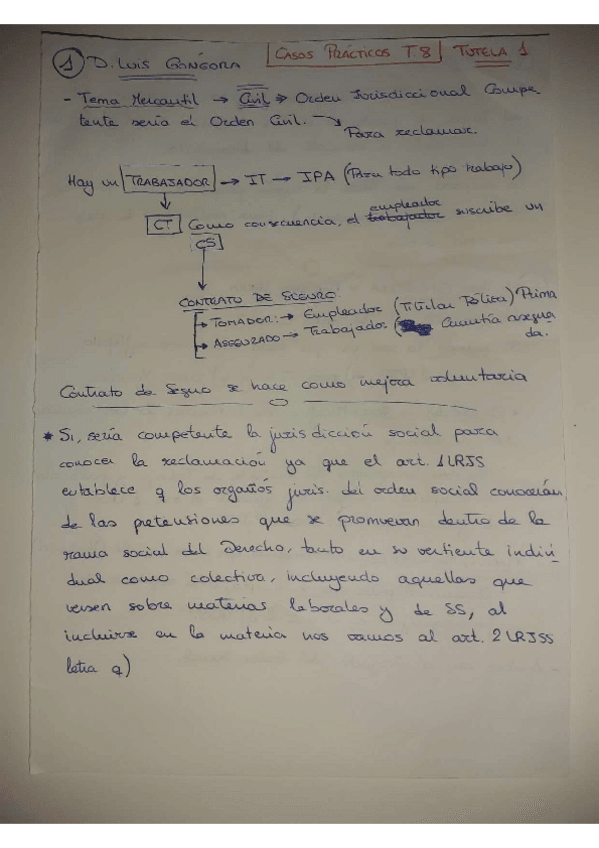 CASOS PRÁCTICOS T.8 TUTELA 1
1 D. LUIS GÓNGORA
- Tema Mercantil → Civil → Orden Jurisdiccional Compe
tente sería el Orden Civil. → Para reclamar.
Hay un TRABAJADOR → IT → IPA (Para todo tipo trabajo)
CT Como consecuencia, el trabajador empleador suscribe un
CS
CONTRATO DE SEGURO
→ TOMADOR: → Empleador (Titular Póliza) Prima
→ ASEGURADO → Trabajador ( Cuantía asegura
da.
Contrato de Seguro se hace como mejora voluntaria
* Si, sería competente la jurisdicción social para
conocer la reclamación ya que el art. 1 LRJS
establece q los organos juris. del orden social conocerán
de las pretensiones que se promuevan dentro de la
rama social del Derecho, tanto en su vertiente indivi
dual como colectiva, incluyendo aquellas que
versen sobre materias laborales y de SS, al
incluirse en la materia nos vamos al art. 2 LRJSS
letra q)